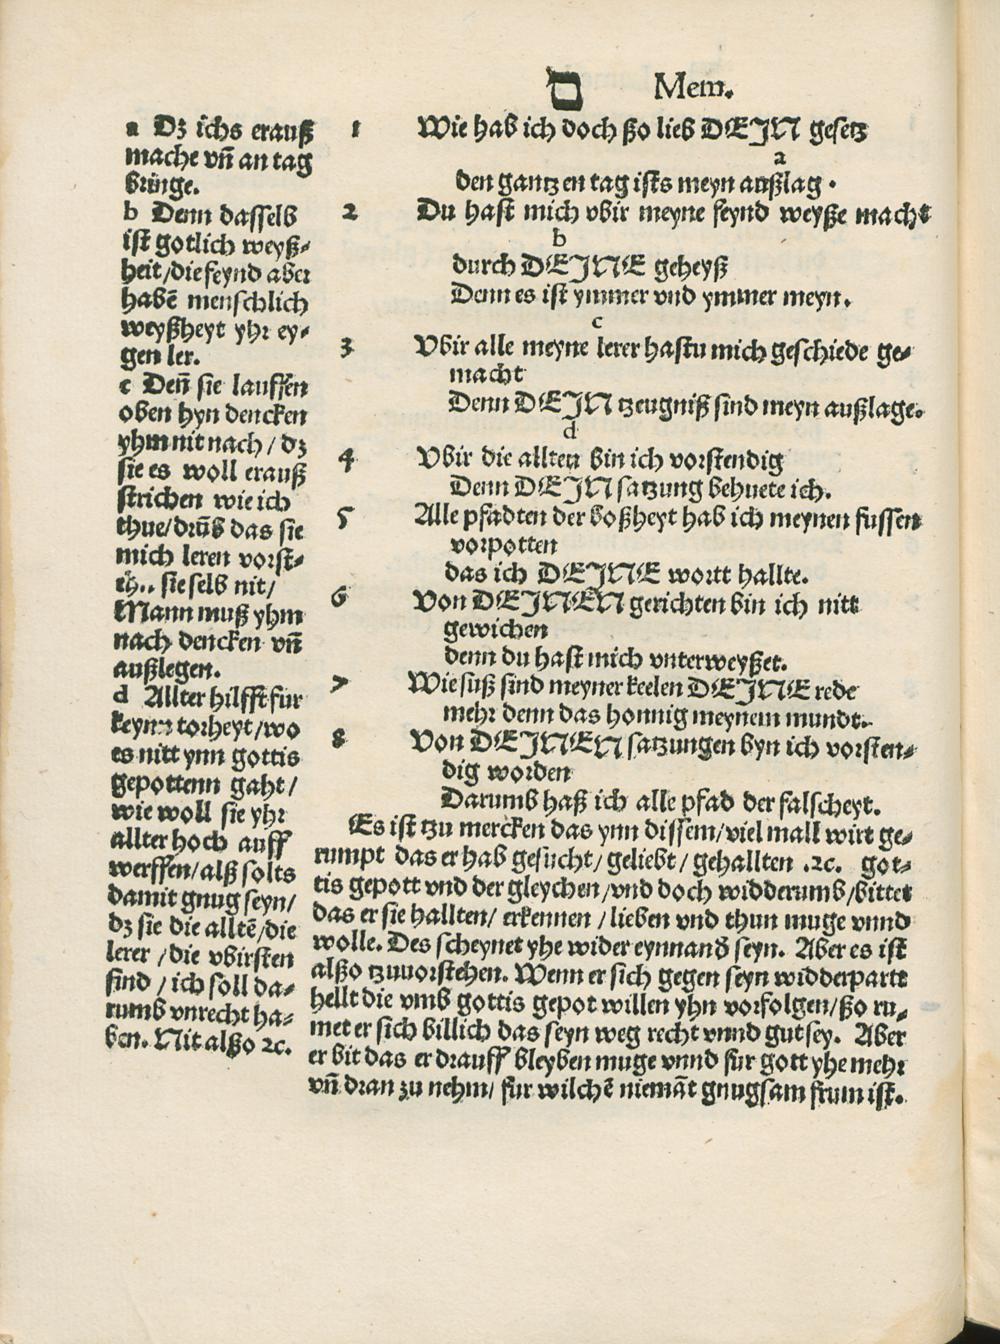 ם Mem.
1 Wie hab ich doch ßo lieb DEJN gesetz
a
den gantzen tag ists meyn außlag.
2 Du hast mich vbir meyne feynd weyße macht
b
durch DEJNE geheyß
Denn es ist ymmer vnd ymmer meyn.
c
3 Vbir alle meyne lerer hastu mich geschiede ge-
macht
Denn DEJN tzeugniß sind meyn außlage.
d
4 Vbir die allten bin ich vorstendig
Denn DEJN satzung behuete ich.
5 Alle pfadten der boßheyt hab ich meynen fussen
vorpotten
das ich DEJNE wortt hallte.
6 Von DEJNEN gerichten bin ich nitt
gewichen
denn du hast mich vnterweyßet.
7 Wie suß sind meyner keelen DEJNE rede
mehr denn das honnig meynem mundt.
8 Von DEJNEN satzungen byn ich vorsten-
dig worden
Darumb haß ich alle pfad der falscheyt.
a Dz ichs erauß
mache vn̄ an tag
bringe.
b Denn dasselb
ist gotlich weyß-
heit/die feynd aber
habē menschlich
weyßheyt yhr ey-
gen ler.
c Den̄ sie lauffen
oben hyn dencken
yhm nit nach/ dz
sie es woll erauß
strichen wie ich
thue/drūb das sie
mich leren vorst-
sie selb nit/
Mann muß yhm
nach dencken vn̄
außlegen.
d Allter hilfft fur
keyne torheyt/wo
es nitt ynn gottis
gepottenn gaht/
wie woll sie yhr
allter hoch auff
werffen/alß solts
damit gnug seyn/
dz sie die alltē/die
lerer/die vbirsten
sind/ich soll da-
rumb vnrecht ha-
ben. Nit alßo ꝛc.
Es ist tzu mercken das ynn dissem/viel mall wirt ge-
rumpt das er hab gesucht/geliebt/gehallten .ꝛc. got-
tis gepott vnd der gleychen/vnd doch widderumb/bittet
das er sie hallten/erkennen/lieben vnd thun muge vnnd
wolle. Des scheynet yhe wider eynnand̄ seyn. Aber es ist
alßo tzuuorstehen. Wenn er sich gegen seyn widderpartt
hellt die vmb gottis gepot willen yhn vorfolgen/ßo ru-
met er sich billich das seyn weg recht vnnd gut sey. Aber
er bit das er drauff bleyben muge vnnd fur gott yhe mehr
vn̄ dran zu nehm/ fur wilchē niemāt gnugsam frum ist.